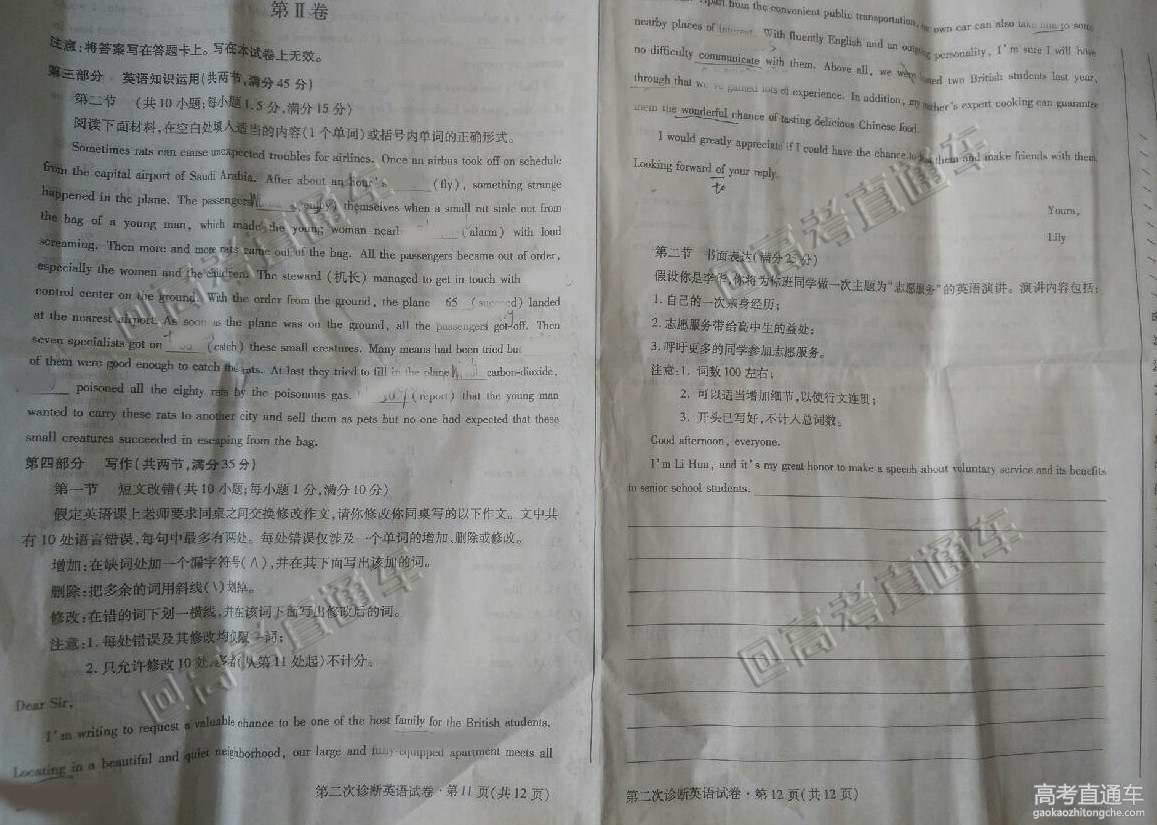 第Ⅱ卷
注意:将答案写在答题卡上。写在本试卷上无效。
第三部分 英语知识运用(共两节,满分45分)
第二节 (共10小题;每小题1.5分,满分15分)
阅读下面材料,在空白处填入适当的内容(1个单词)或括号内单词的正确形式。
Sometimes rats can cause unexpected troubles for airlines. Once an airbus took off on schedule
from the capital airport of Saudi Arabia. After about an hour's (fly), something strange
happened in the plane. The passengers themselves when a small rat stole out from
the bag of a young man, which made the young woman nearby (alarm) with loud
screaming. Then more and more rats came out of the bag. All the passengers became out of order,
especially the women and the children. The steward (机长) managed to get in touch with
control center on the ground. With the order from the ground, the plane 65 (succeed) landed
at the nearest airport. As soon as the plane was on the ground, all the passengers got off. Then
seven specialists got on (catch) these small creatures. Many means had been tried but
of them were good enough to catch the rats. At last they tried to fill in the plane carbon-dioxide,
poisoned all the eighty rats by the poisonous gas. (report) that the young man
wanted to carry these rats to another city and sell them as pets but no one had expected that these
small creatures succeeded in escaping from the bag.
第四部分 写作(共两节,满分35分)
第一节 短文改错(共10小题;每小题1分,满分10分)
假定英语课上老师要求同桌之间交换修改作文,请你修改你同桌写的以下作文。文中共
有10处语言错误,每句中最多有两处。每处错误仅涉及一个单词的增加、删除或修改。
增加:在缺词处加一个漏字符号(∧),并在其下面写出该加的词。
删除:把多余的词用斜线(\)划掉。
修改:在错的词下划一横线,并在该词下面写出修改后的词。
注意:1. 每处错误及其修改均仅限一词;
2. 只允许修改10处,多者(从第11处起)不计分。
Dear Sir,
I'm writing to request a valuable chance to be one of the host family for the British students.
Locating in a beautiful and quiet neighborhood, our large and fully-equipped apartment meets all
第二次诊断英语试卷·第11页(共12页)
Apart from the convenient public transportation, own car can also take him to some
nearby places of interest. With fluently English and an outgoing personality, I'm sure I will have
no difficulty communicate with them. Above all, we were hosted two British students last year,
through that we've gained lots of experience. In addition, my mother's expert cooking can guarantee
them the wonderful chance of tasting delicious Chinese food.
I would greatly appreciate if I could have the chance to them and make friends with them.
Looking forward of your reply.
to
Yours,
Lily
第二节 书面表达(满分25分)
假设你是李华,你将为你班同学做一次主题为"志愿服务"的英语演讲。演讲内容包括:
1. 自己的一次亲身经历;
2. 志愿服务带给高中生的益处;
3. 呼吁更多的同学参加志愿服务。
注意:1. 词数100左右;
2. 可以适当增加细节,以使行文连贯;
3. 开头已写好,不计入总词数。
Good afternoon, everyone.
I'm Li Hua, and it's my great honor to make a speech about voluntary service and its benefits
to senior school students.
第二次诊断英语试卷·第12页(共12页)
@高考直通车
@高考直通车
@高考直通车
@高考直通车
高考直通车
gaokaozhitongche.com